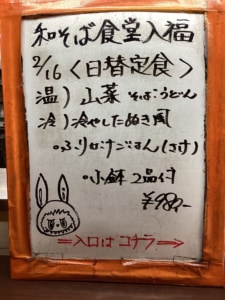 和そば食堂入福
2/16〈日替定食〉
温）山菜 そば・うどん
冷）冷やしたぬき風
・ふりかけごはん(さけ)
・小鉢 2品付
¥980-
⇒入口はコチラ→